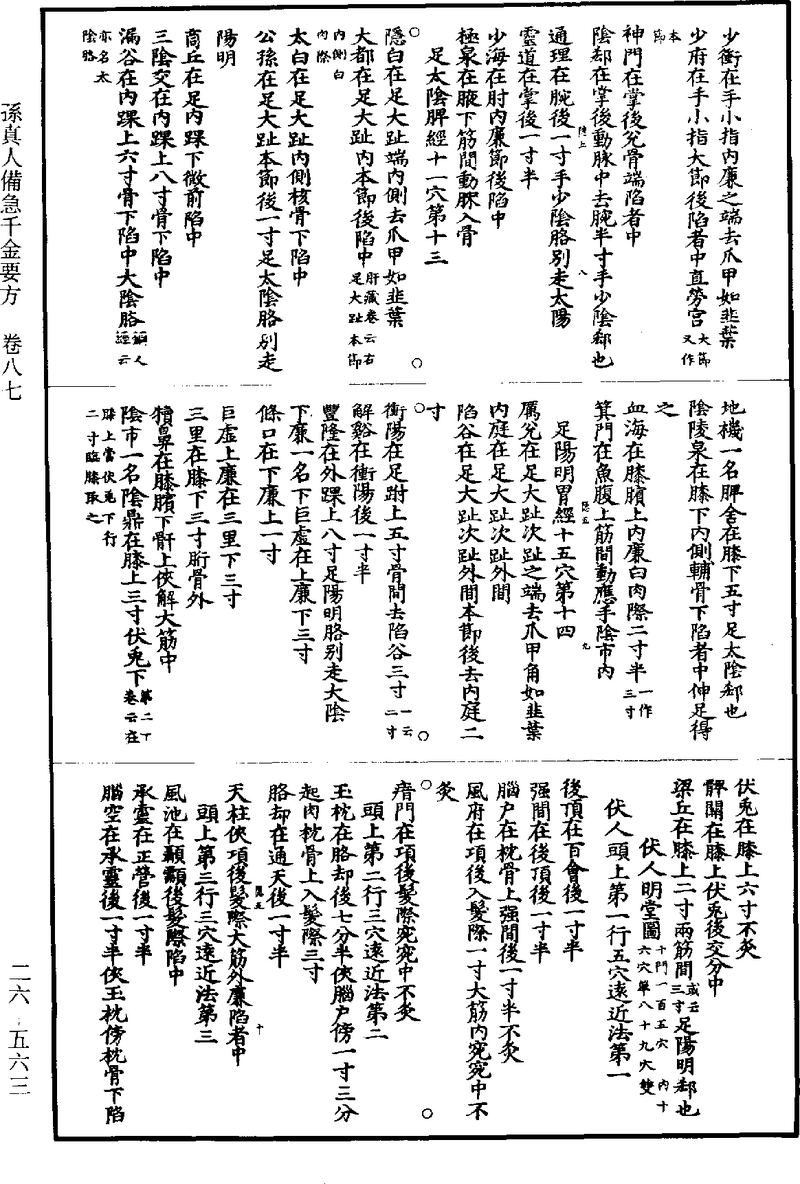 少衝在手小指内廉之端去爪甲如韭葉
少府在手小指大節後陷者中直勞宮大節又作
本節
神門在掌後兌骨端陷者中
陰郄在掌後動脉中去腕半寸手少陰郄也
通理在腕後一寸手少陰胳别走太陽
靈道在掌後一寸半
少海在肘内廉節後陷中
極泉在腋下筋間動脉入骨
足太陰脾經十一穴第十三
隱白在足大趾端内側去爪甲如韭葉
大都在足大趾内本節後陷中肝藏卷云右足大趾本節
内側白肉際
太白在足大趾内側核骨下陷中
公孫在足大趾本節後一寸足太陰胳别走
陽明
商丘在足内踝下微前陷中
三陰交在内踝上八寸骨下陷中
漏谷在内踝上六寸骨下陷中太陰胳銅人經云
亦名太陰胳
地機一名脾舍在膝下五寸足太陰郄也
陰陵泉在膝下内側輔骨下陷者中伸足得
之
血海在膝臏上内廉白肉際二寸半一作三寸
箕門在魚腹上筋間動應手陰市内
足陽明胃經十五穴第十四
厲兌在足大趾次趾之端去爪甲角如韭葉
内庭在足大趾次趾外間
陷谷在足大趾次趾外間本節後去内庭二
寸
衝陽在足跗上五寸骨間去陷谷三寸一云二寸
解谿在衝陽後一寸半
豐隆在外踝上八寸足陽明胳别走太陰
下廉一名下巨虚在上廉下三寸
條口在下廉上一寸
巨虚上廉在三里下三寸
三里在膝下三寸胻骨外
犢鼻在膝臏下骭上俠解大筋中
陰市一名陰鼎在膝上三寸伏兎下第二十卷云在
膝上當伏兎下行二寸臨膝取之
伏兎在膝上六寸不灸
髀關在膝上伏兎後交分中
梁丘在膝上二寸兩筋間或云三寸足陽明郄也
伏人明堂圖十門一百五穴内十六穴單八十九穴雙
伏人頭上第一行五穴遠近法第一
後頂在百會後一寸半
强間在後頂後一寸半
腦户在枕骨上强間後一寸半不灸
風府在項後入髮際一寸大筋内宛宛中不
灸
瘖門在項後髮際宛宛中不灸
頭上第二行三穴遠近法第二
玉枕在胳却後七分半俠腦户傍一寸三分
起肉枕骨上入髮際三寸
胳却在通天後一寸半
天柱俠項後髮際大筋外廉陷者中
頭上第三行三穴遠近法第三
風池在顳顬後髮際陷中
承靈在正營後一寸半
腦空在承靈後一寸半俠玉枕傍枕骨下陷
孫真人備急千金要方　卷八七
二六·五六三